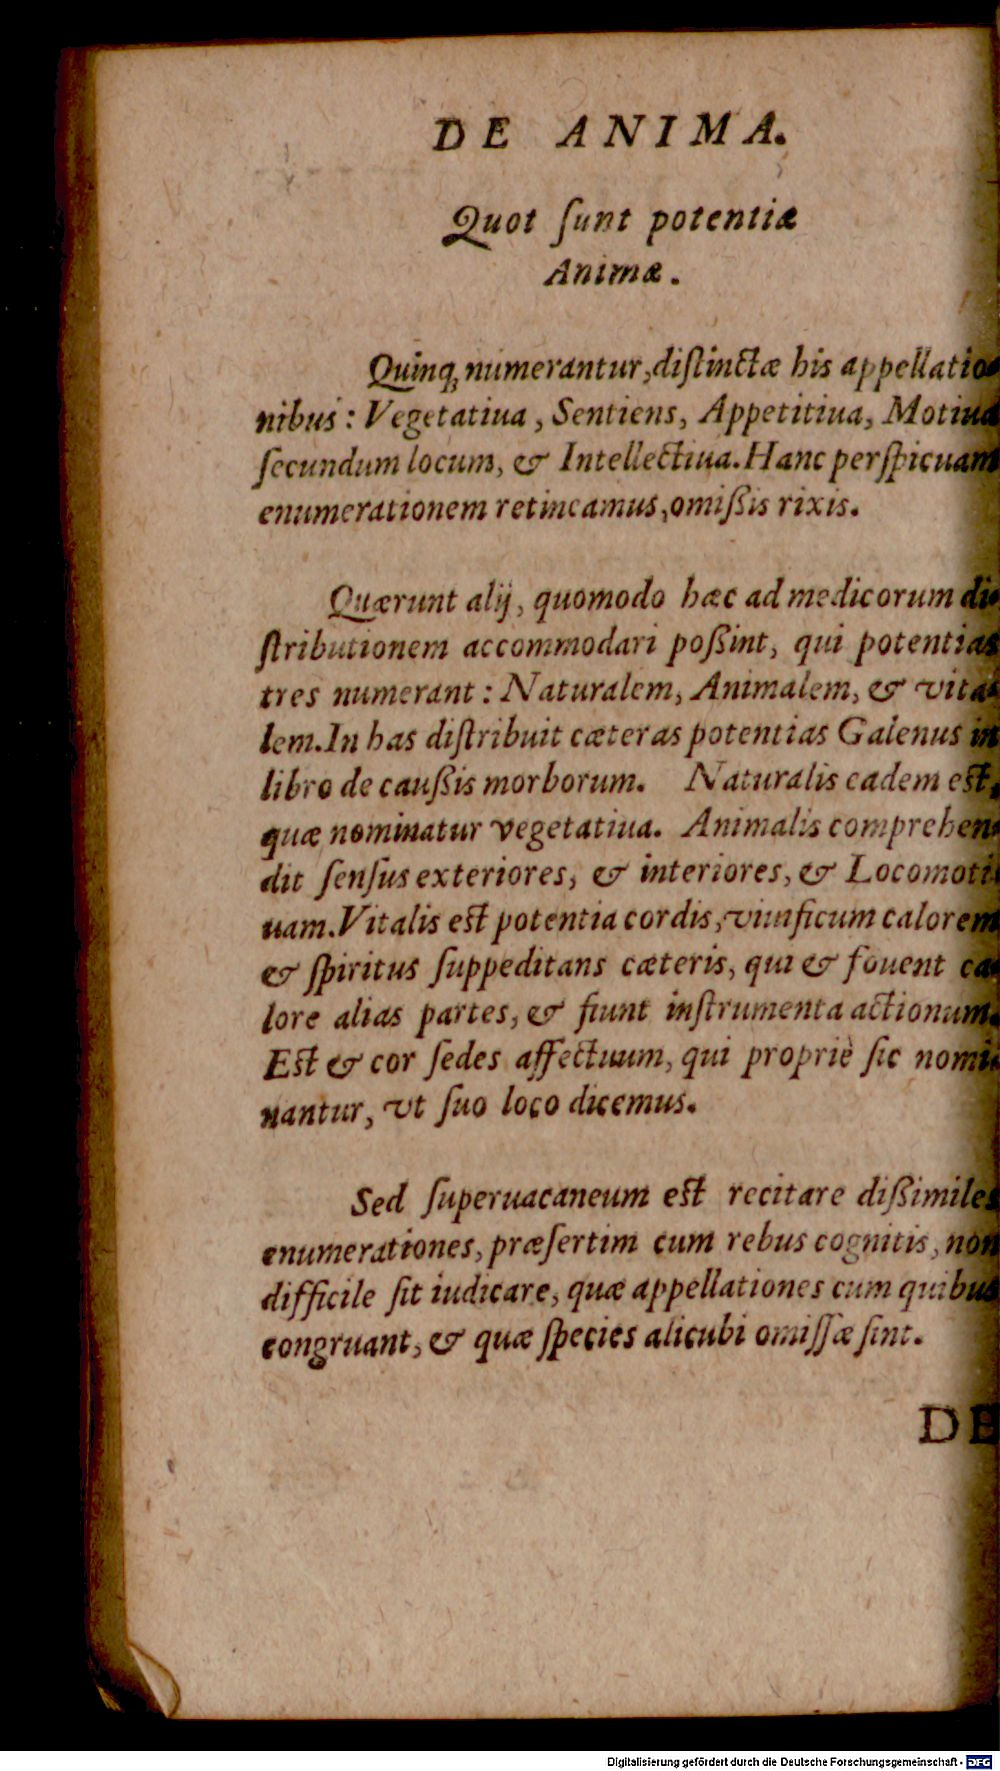 DE ANIMA.
Quot ſunt potentiæ
Animæ.
Quinq; numerantur, diſtinctæ his appellatio-
nibus: Vegetatiua, Sentiens, Appetitiua, Motiua
ſecundum locum, & Intellectiua. Hanc perſpicuam
enumerationem retineamus, omißis rixis.
Quærunt alij, quomodo hæc ad medicorum di-
ſtributionem accommodari poßint, qui potentias
tres numerant: Naturalem, Animalem, & vita-
lem. In has diſtribuit cæteras potentias Galenus in
libro de caußis morborum. Naturalis eadem est,
quæ nominatur vegetatiua. Animalis comprehen-
dit ſenſus exteriores, & interiores, & Locomoti-
uam. Vitalis est potentia cordis, viuificum calorem
& ſpiritus ſuppeditans cæteris, qui & fouent ca-
lore alias partes, & fiunt inſtrumenta actionum.
Est & cor ſedes affectuum, qui propriè ſic nomi-
nantur, vt ſuo loco dicemus.
Sed ſuperuacaneum est recitare dißimiles
enumerationes, præſertim cum rebus cognitis, non
difficile ſit iudicare, quæ appellationes cum quibus
congruant, & quæ ſpecies alicubi omiſſæ ſint.
DE
Digitalisierung gefördert durch die Deutsche Forschungsgemeinschaft - DFG